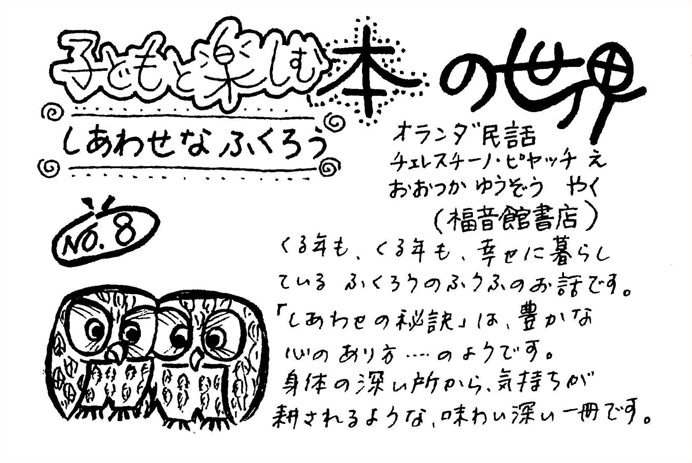 子どもと楽しむ本の世界
しあわせなふくろう
オランダ民話
チェレスチーノ・ピヤッチ え
おおつか ゆうぞう やく
(福音館書店)
NO.8
くる年も、くる年も、幸せに暮らし
ている ふくろうのふうふのお話です。
「しあわせの秘訣」は、豊かな
心のあり方……のようです。
身体の深い所から、気持ちが
耕されるような、味わい深い一冊です。